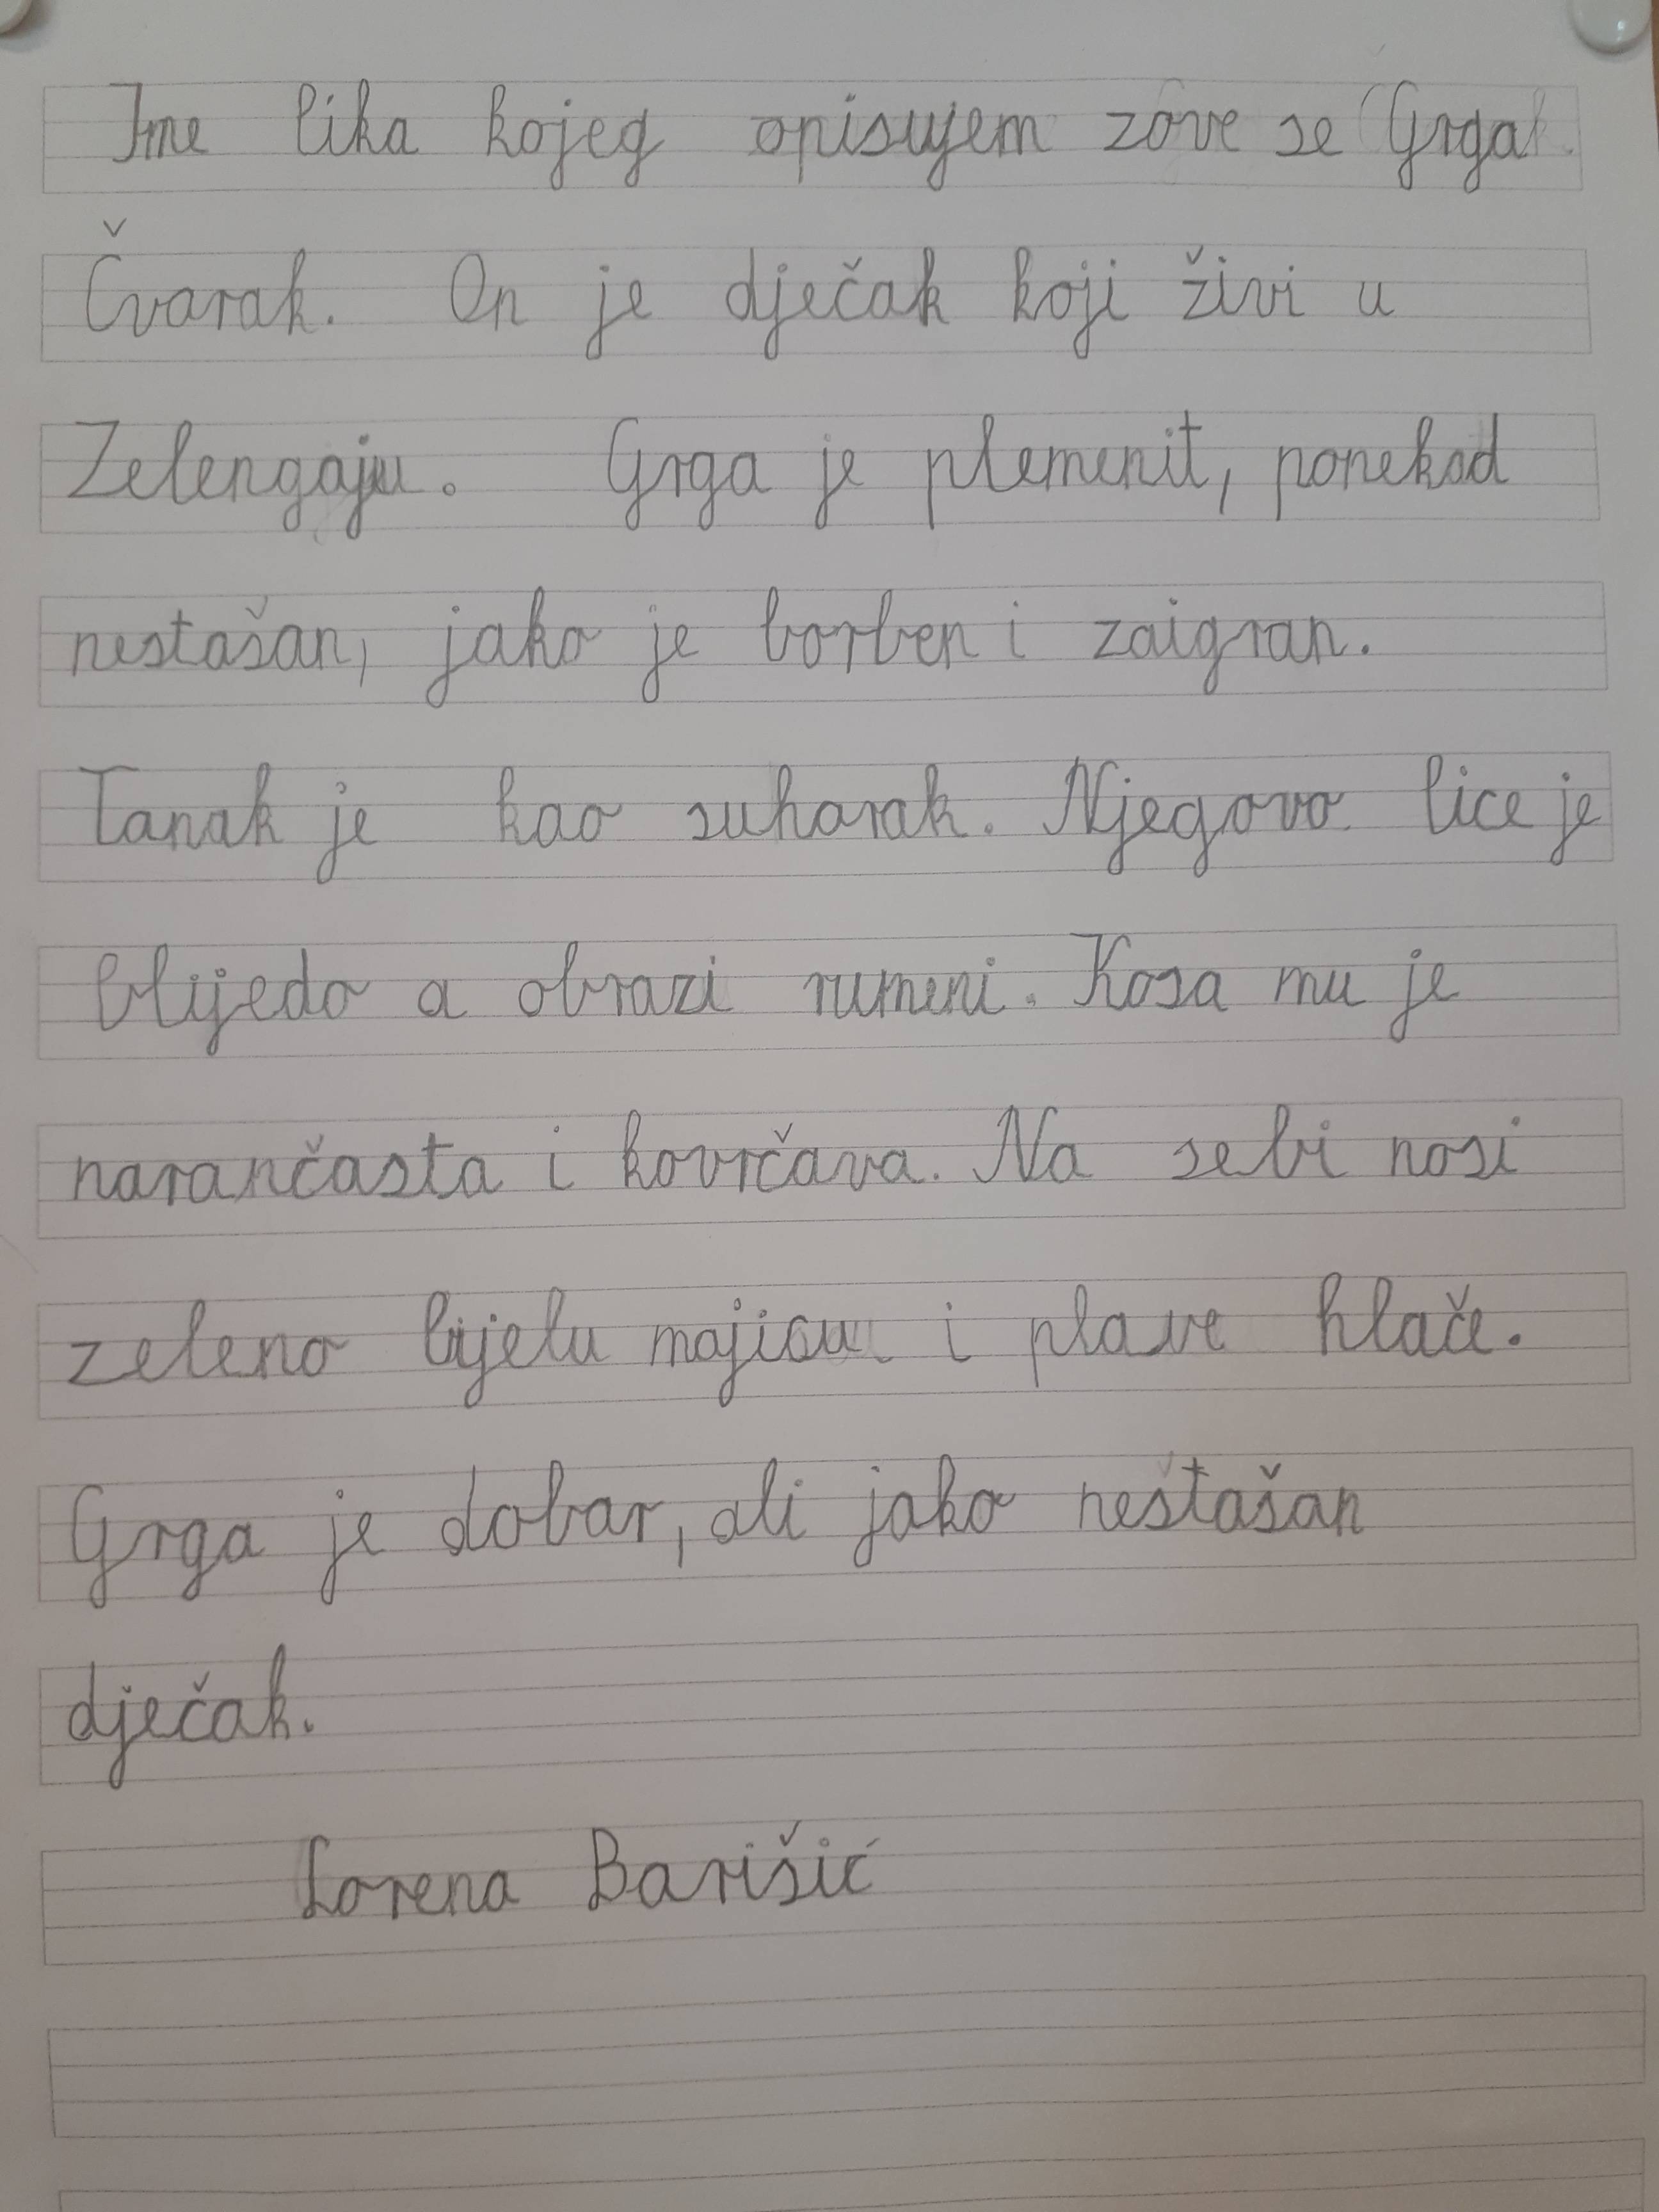 Ime lika kojeg opisujem zove se Grga
Čvarak. On je dječak koji živi u
Zelengaju. Grga je plemenit, ponekad
nestašan, jako je borben i zaigran.
Tanak je kao suharak. Njegovo lice je
blijedo a obrazi rumeni. Kosa mu je
narančasta i kovrčava. Na sebi nosi
zeleno bijelu majicu i plave hlače.
Grga je dobar, ali jako neštašan
dječak.
Lorena Barišić